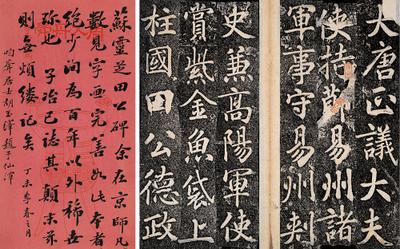 大唐正議大夫
使持節易州諸
軍事守易州刺
史兼高陽軍使
賞紫金魚袋上
柱國田公德政
蘇靈芝田公碑余在京師凡
數見字畫完善如此本者
絕少洵為百年以外稀世
珍也子治已誌其顛末茲
則無煩縷記矣
丁未季春之月
居士胡玉澤題于仙潭